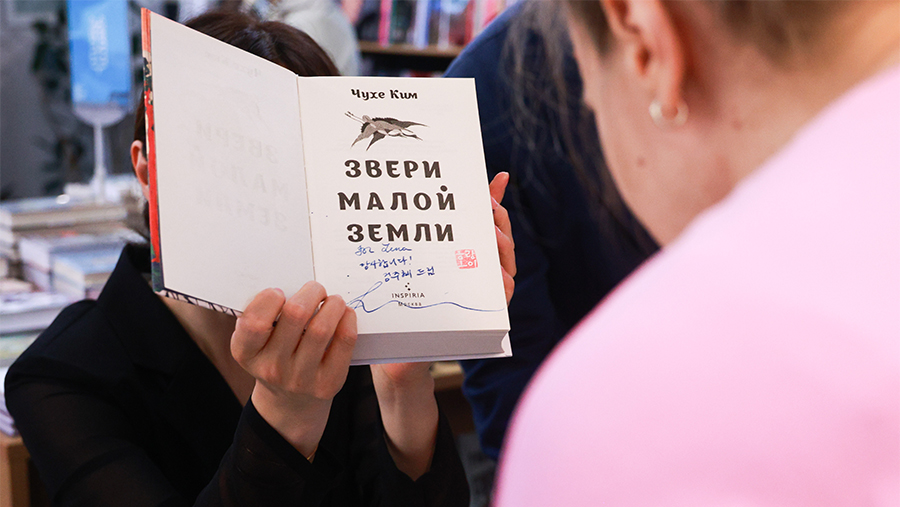 Чухе Ким
ЗВЕРИ
МАЛОЙ
ЗЕМЛИ
Lena
감사합니다!
김주혜 드림
INSPIRIA
Москва